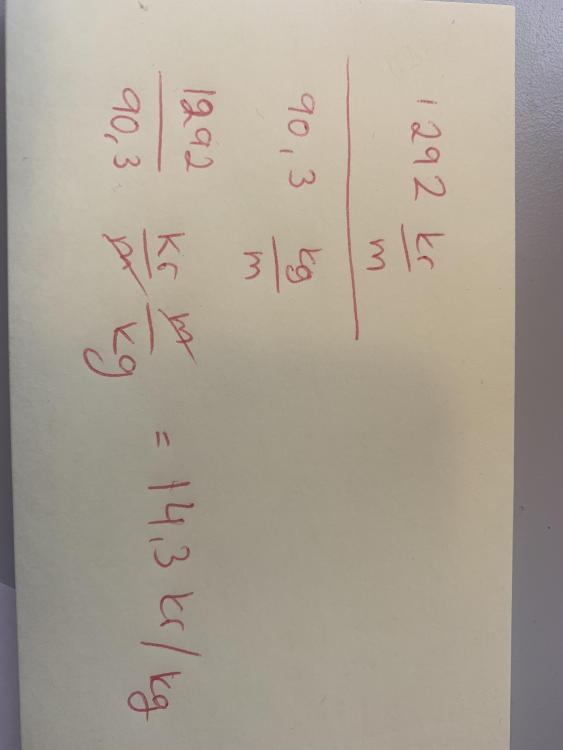 1292 kr
m
90,3 kg
m
1292 kr m
90,3 m kg = 14,3 kr/kg